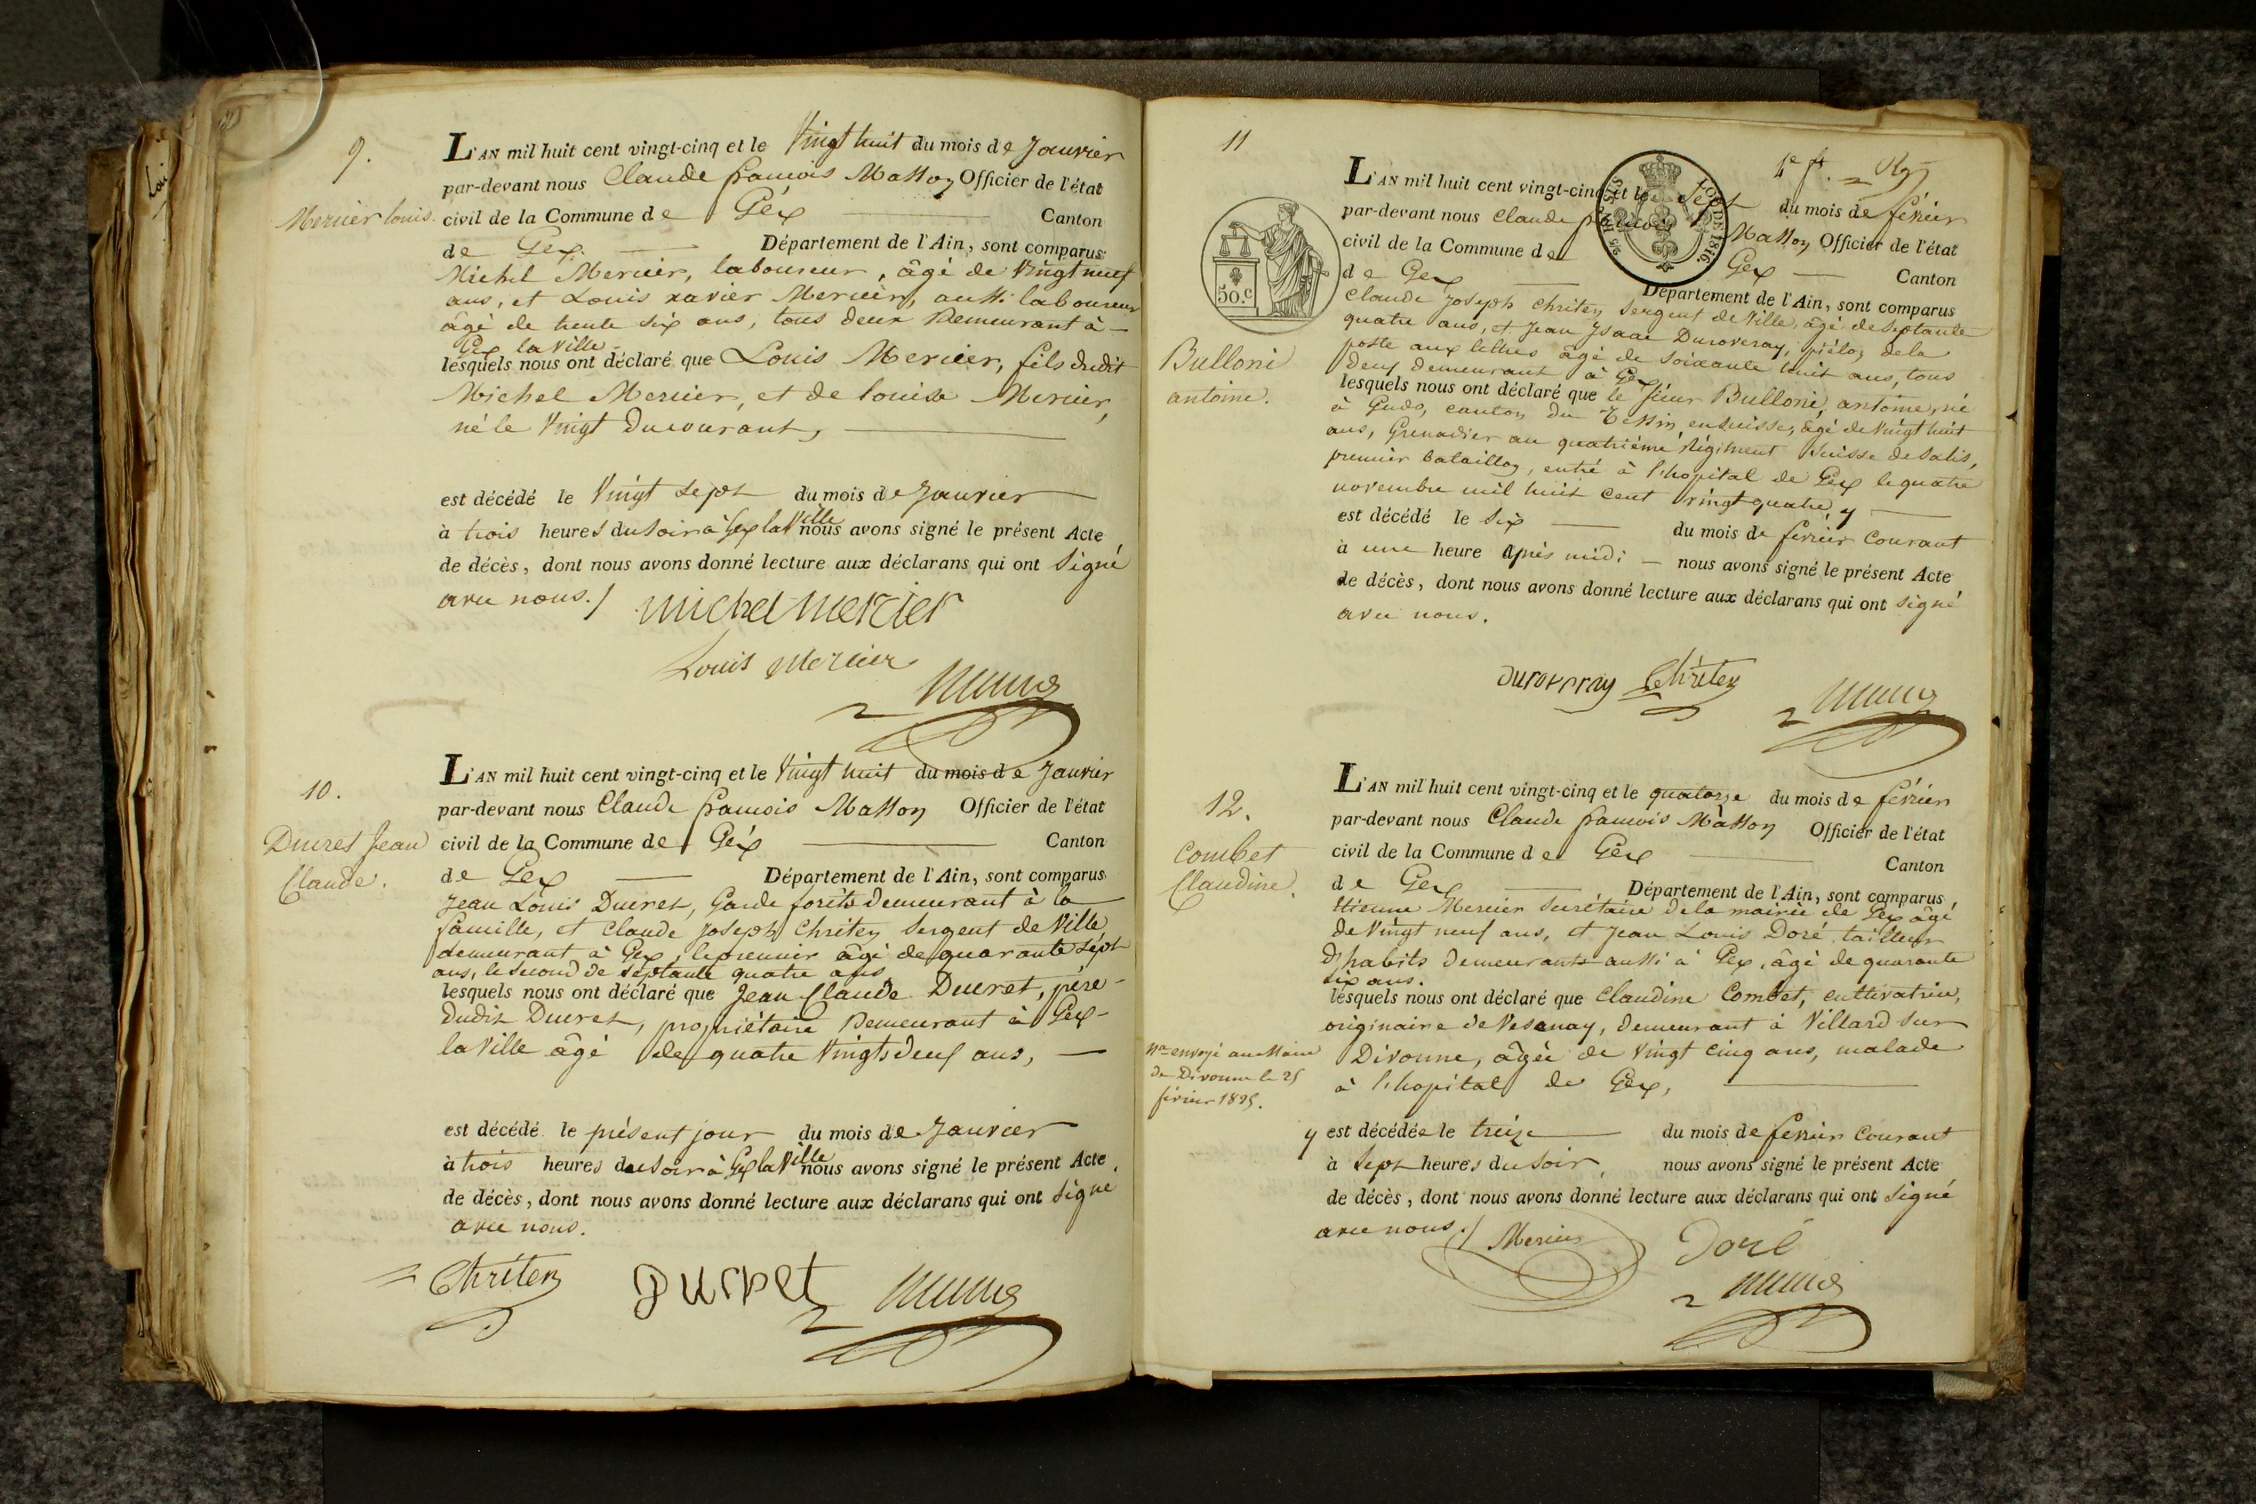 9.
L'AN mil huit cent vingt-cinq et le Vingt huit du mois de Janvier
par-devant nous Claude françois Masson Officier de l'état
Mercier Louis. civil de la Commune de Gex Canton
de Gex Département de l'Ain, sont comparus
Michel Mercier, laboureur, âgé de Vingt neuf
ans, et Louis xavier Mercier, aussi laboureur
âgé de trente six ans, tous deux Demeurant à
Gex la Ville
lesquels nous ont déclaré que Louis Mercier, fils dudit
Michel Mercier, et de louise Mercier,
né le Vingt Du courant,
est décédé le Vingt sept du mois de Janvier
à trois heures du soir à Gex la Ville nous avons signé le présent Acte
de décès, dont nous avons donné lecture aux déclarans qui ont signé
avec nous./.
michel mercier
Louis mercier
10.
L'AN mil huit cent vingt-cinq et le Vingt huit du mois de Janvier
par-devant nous Claude françois Masson Officier de l'état
Ducret Jean
Claude.
civil de la Commune de Gex Canton
de Gex Département de l'Ain, sont comparus
Jean Louis Ducret, Garde forêts demeurant à la
famille, et Claude Joseph Chréten Sergent de Ville
demeurant à Gex, le premier âgé de quarante sept
ans, le second de septante quatre ans
lesquels nous ont déclaré que Jean Claude Ducret, père
dudit Ducret, propriétaire Demeurant à Gex
la Ville âgé de quatre Vingts deux ans,
est décédé le présent jour du mois de Janvier
à trois heures du soir à Gex la Ville nous avons signé le présent Acte
de décès, dont nous avons donné lecture aux déclarans qui ont signé
avec nous.
Chréten Ducret
11
LOI DE 1816.
50.c
L'AN mil huit cent vingt-cinq et le Sept du mois de février
par-devant nous Claude françois Masson Officier de l'état
civil de la Commune de Gex Canton
de Gex Département de l'Ain, sont comparus
Bulloni
antoine.
Claude Joseph Chréten, Sergent de Ville, âgé de septante
quatre ans, et Jean Isaac Duroveray, piéton de la
poste aux lettres âgé de soixante huit ans, tous
deux demeurant à Gex
lesquels nous ont déclaré que le sieur Bulloni, antoine, né
à Gudo, canton du Tessin, en suisse, âgé de Vingt huit
ans, Grenadier au quatrième Régiment Suisse de Salis,
premier bataillon, entré à l'hopital de Gex le quatre
novembre mil huit cent vingt quatre, y
est décédé le six du mois de février courant
à une heure après midi nous avons signé le présent Acte
de décès, dont nous avons donné lecture aux déclarans qui ont signé
avec nous.
duroveray Chréten
12.
L'AN mil huit cent vingt-cinq et le quatorze du mois de février
par-devant nous Claude françois Masson Officier de l'état
Combet
Claudine.
civil de la Commune de Gex Canton
de Gex Département de l'Ain, sont comparus
Etienne Mercier Secrétaire de la mairie de Gex âgé
de Vingt neuf ans, et Jean Louis Doré tailleur
d'habits Demeurants aussi à Gex, âgé de quarante
six ans.
lesquels nous ont déclaré que Claudine Combet, cultivatrice,
originaire de Vesenay, demeurant à Villard sur
Divonne, âgée de Vingt cinq ans, malade
à l'hopital de Gex,
envoyé au Maire
de Divonne le 25
février 1825.
y est décédée le treize du mois de février courant
à sept heures du soir, nous avons signé le présent Acte
de décès, dont nous avons donné lecture aux déclarans qui ont signé
avec nous./.
Mercier Doré